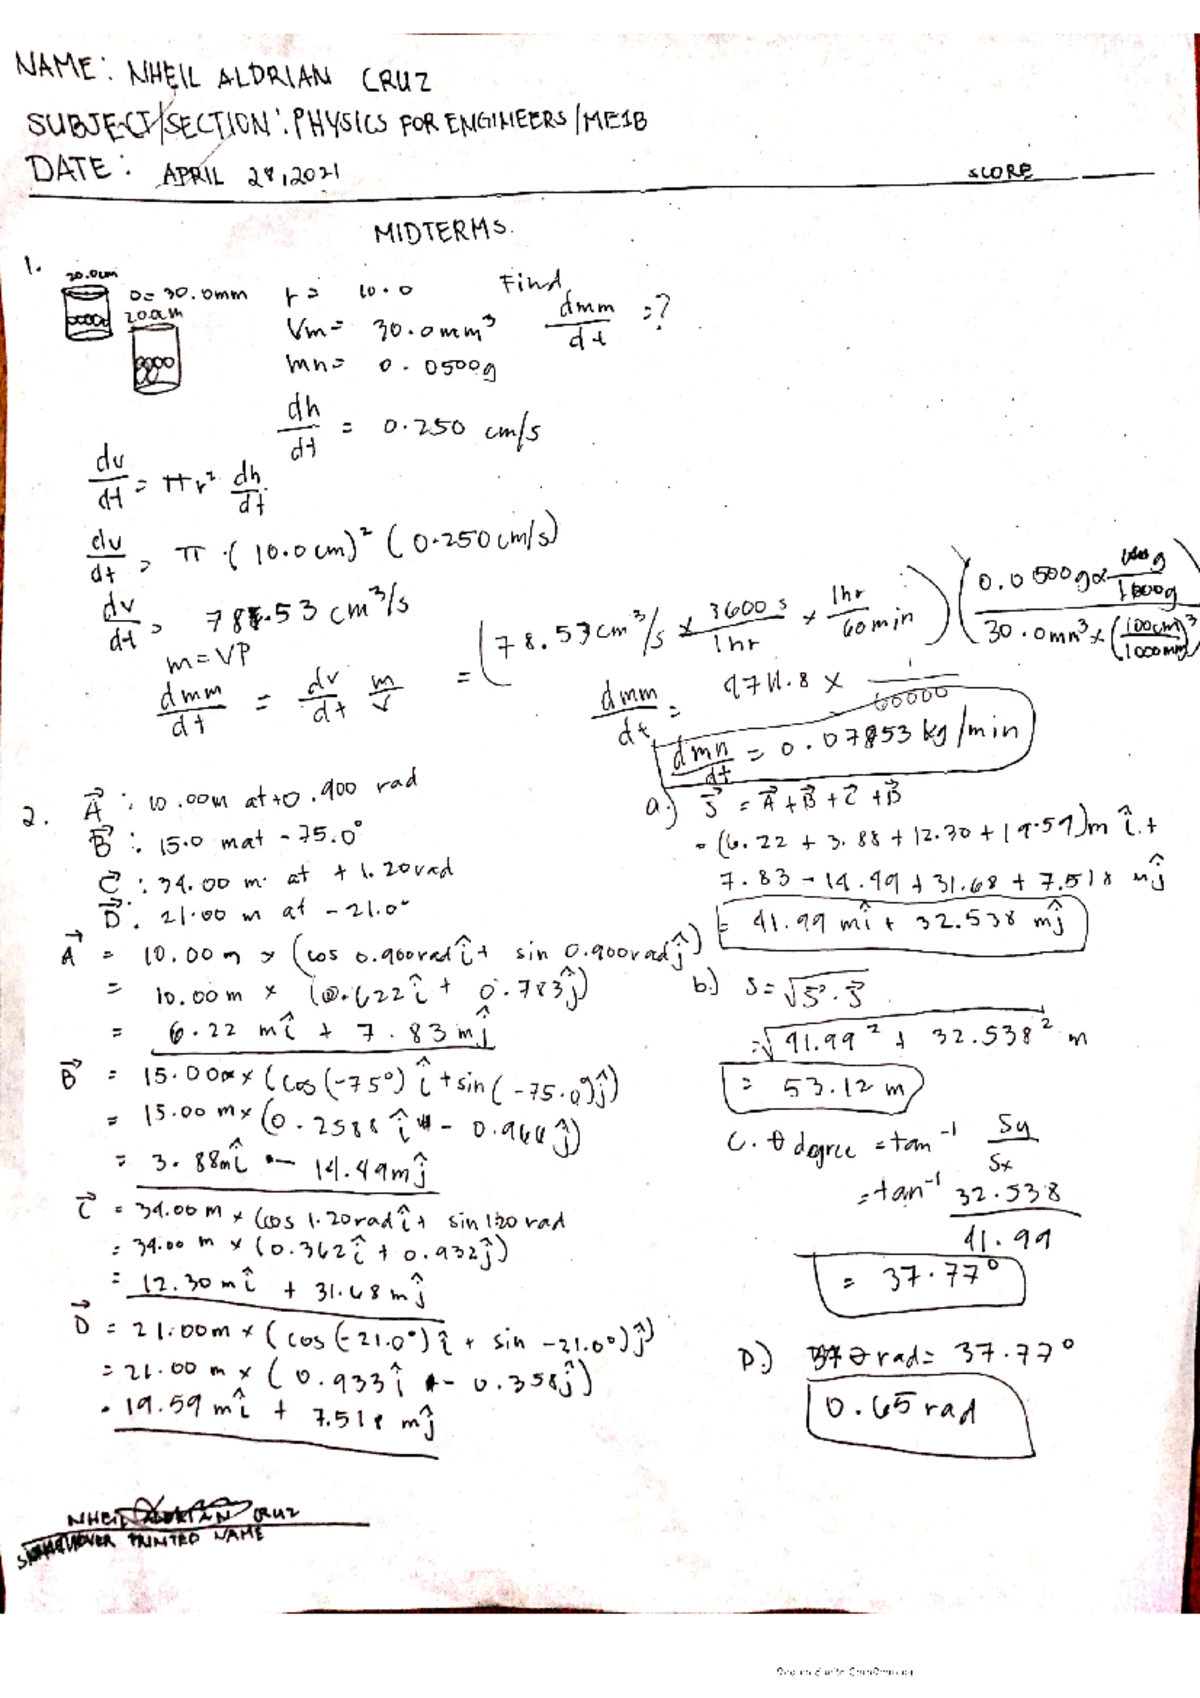 NAME: NHEIL ALDRIAN CRUZ
SUBJECT/SECTION: PHYSICS FOR ENGINEERS/ME1B
DATE: APRIL 28, 2021
SCORE
MIDTERMS.
1.
20.0cm
D= 30.0mm
20.0cm
r= 10.0
Vm= 30.0mm³
mn= 0.0500g
Find
dmm/dt =?
dh/dt = 0.250 cm/s
dv/dt = πr² dh/dt
dv/dt = π (10.0cm)² (0.250cm/s)
dv/dt = 78.53 cm³/s
m=VP
dmm/dt = dv/dt m/v
= (78.53cm³/s × 3600s/1hr × 1hr/60min) (0.0500g × g/1000g / 30.0mm³ × (100cm/1000mm)³
dmm/dt = 4711.8 × 1/60000
dmn/dt = 0.07853 kg/min
2. A⃗: 10.00m at +0.900 rad
B⃗: 15.0 m at -75.0°
C⃗: 34.00 m at +1.20rad
D⃗: 21.00 m at -21.0°
A⃗ = 10.00m × (cos 0.900rad î + sin 0.900rad ĵ)
= 10.00m × (0.622î + 0.783ĵ)
= 6.22 mî + 7.83 mĵ
B⃗ = 15.00m × (cos(-75°) î + sin(-75.0°)ĵ)
= 15.00 m × (0.2588 î - 0.966ĵ)
= 3.88mî - 14.49mĵ
C⃗ = 34.00m × (cos 1.20rad î + sin 1.20 rad
= 34.00 m × (0.362î + 0.932ĵ)
= 12.30mî + 31.68mĵ
D⃗ = 21.00m × (cos(-21.0°) î + sin -21.0°)ĵ)
= 21.00 m × (0.933î - 0.358ĵ)
= 19.59 mî + 7.518 mĵ
a.) S⃗ = A⃗+B⃗+C⃗+D⃗
= (6.22 + 3.88 + 12.30 + 19.59)m î +
7.83 - 14.49 + 31.68 + 7.518 mĵ
= 41.99 mî + 32.538 mĵ
b.) S = √S⃗·S⃗
= √41.99² + 32.538² m
= 53.12 m
C. θ degree = tan⁻¹ Sy/Sx
= tan⁻¹ 32.538/41.99
= 37.77°
D.) θ rad = 37.77°
0.65 rad
NHEIL ALDRIAN CRUZ
OVER PRINTED NAME